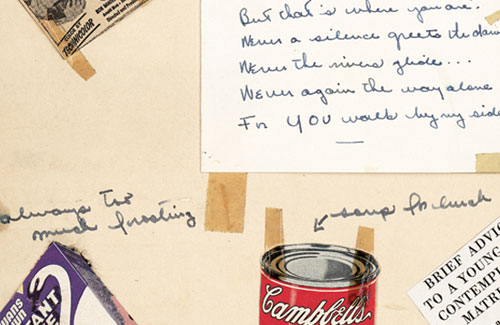 COLOR BY
TECHNICOLOR
But that's where you are.
Never a silence greets the dawn
Never the rivers glide...
Never again the way alone
For YOU walk by my side
always too
much frosting
soup for lunch
Campbell's
BRIEF ADVIC
TO A YOUNG
CONTEMPL
MATRI